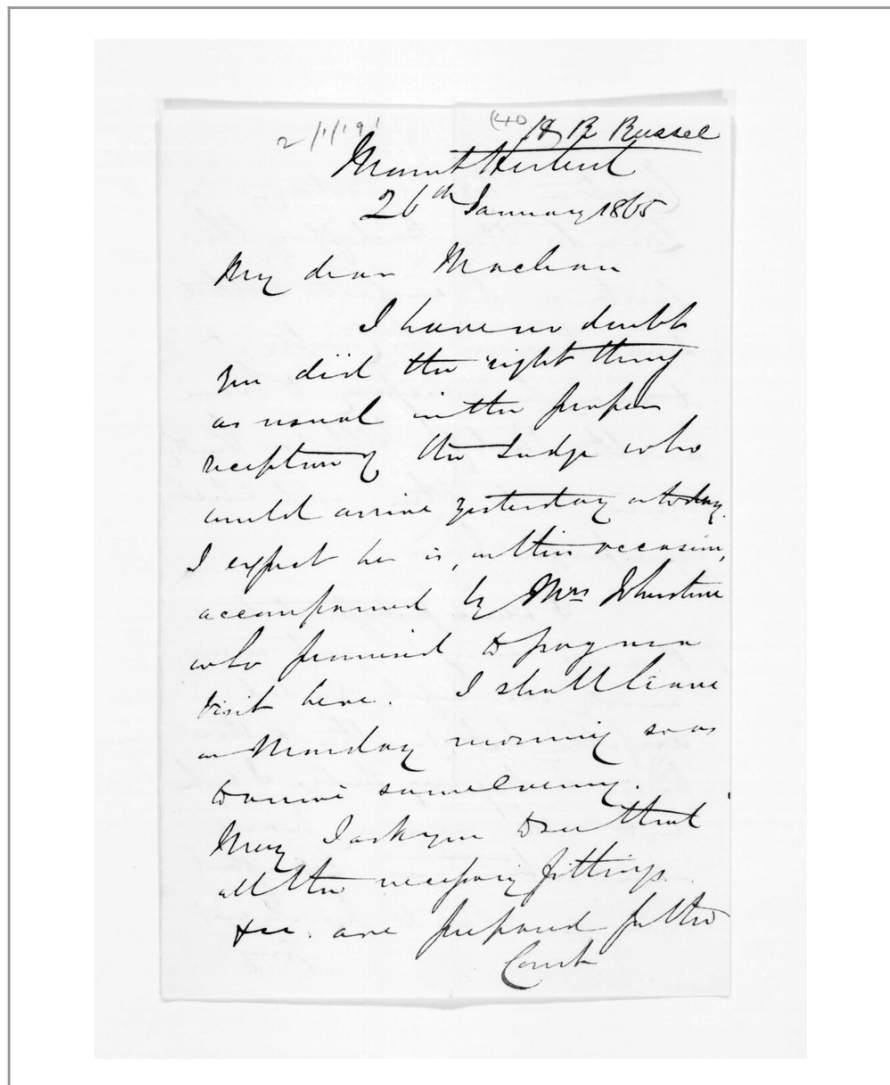 2/1/191
(40 H R Russel
Mount Herbert
26th January 1865
My dear Maclean
I have no doubt
you did the right thing
as usual in the proper
reception of the Judge who
would arrive yesterday or today.
I expect he is, on this occasion,
accompanied by Mrs Johnstone
who promised to pay us a
visit here. I shall leave
on Monday morning so as
to arrive same evening.
May I ask you to see that
all the necessary fittings
&c. are prepared for the
Court